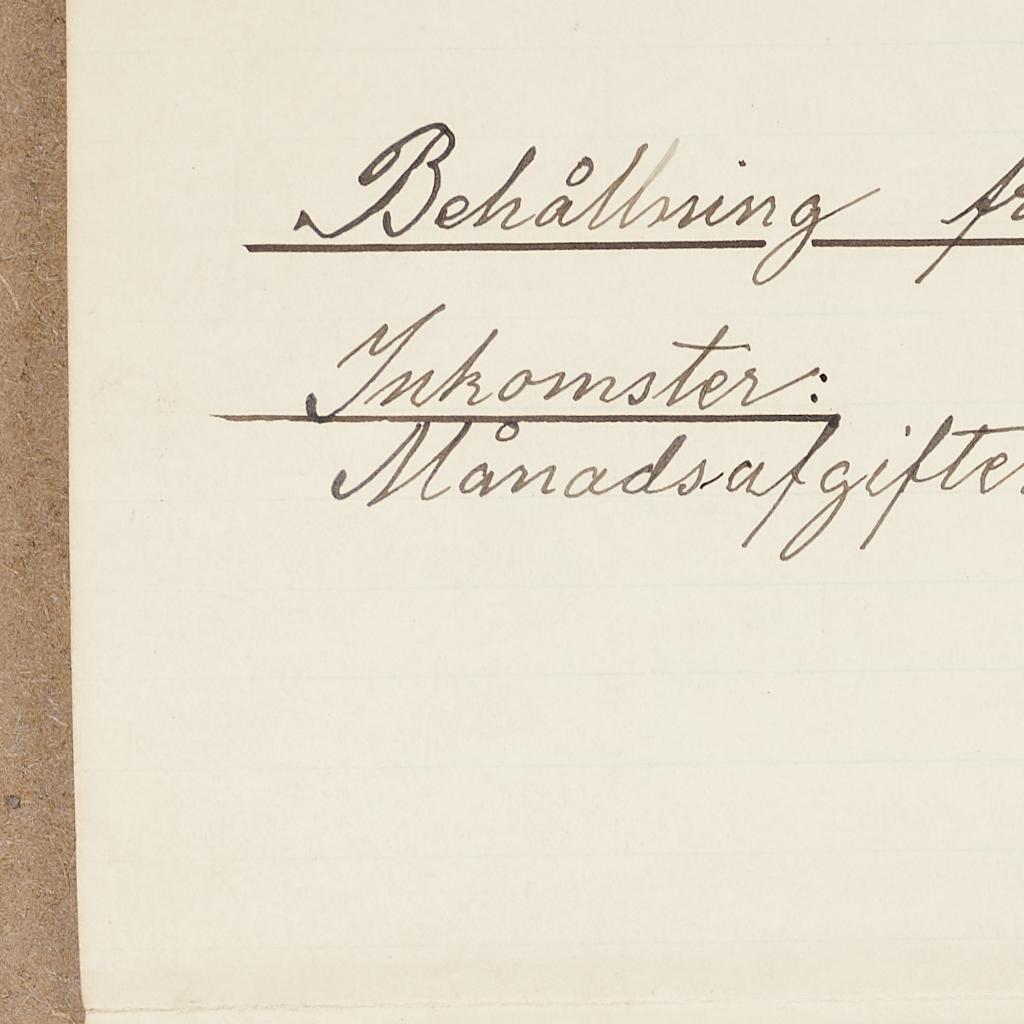 Behållning fr
Inkomster:
Månadsafgifter